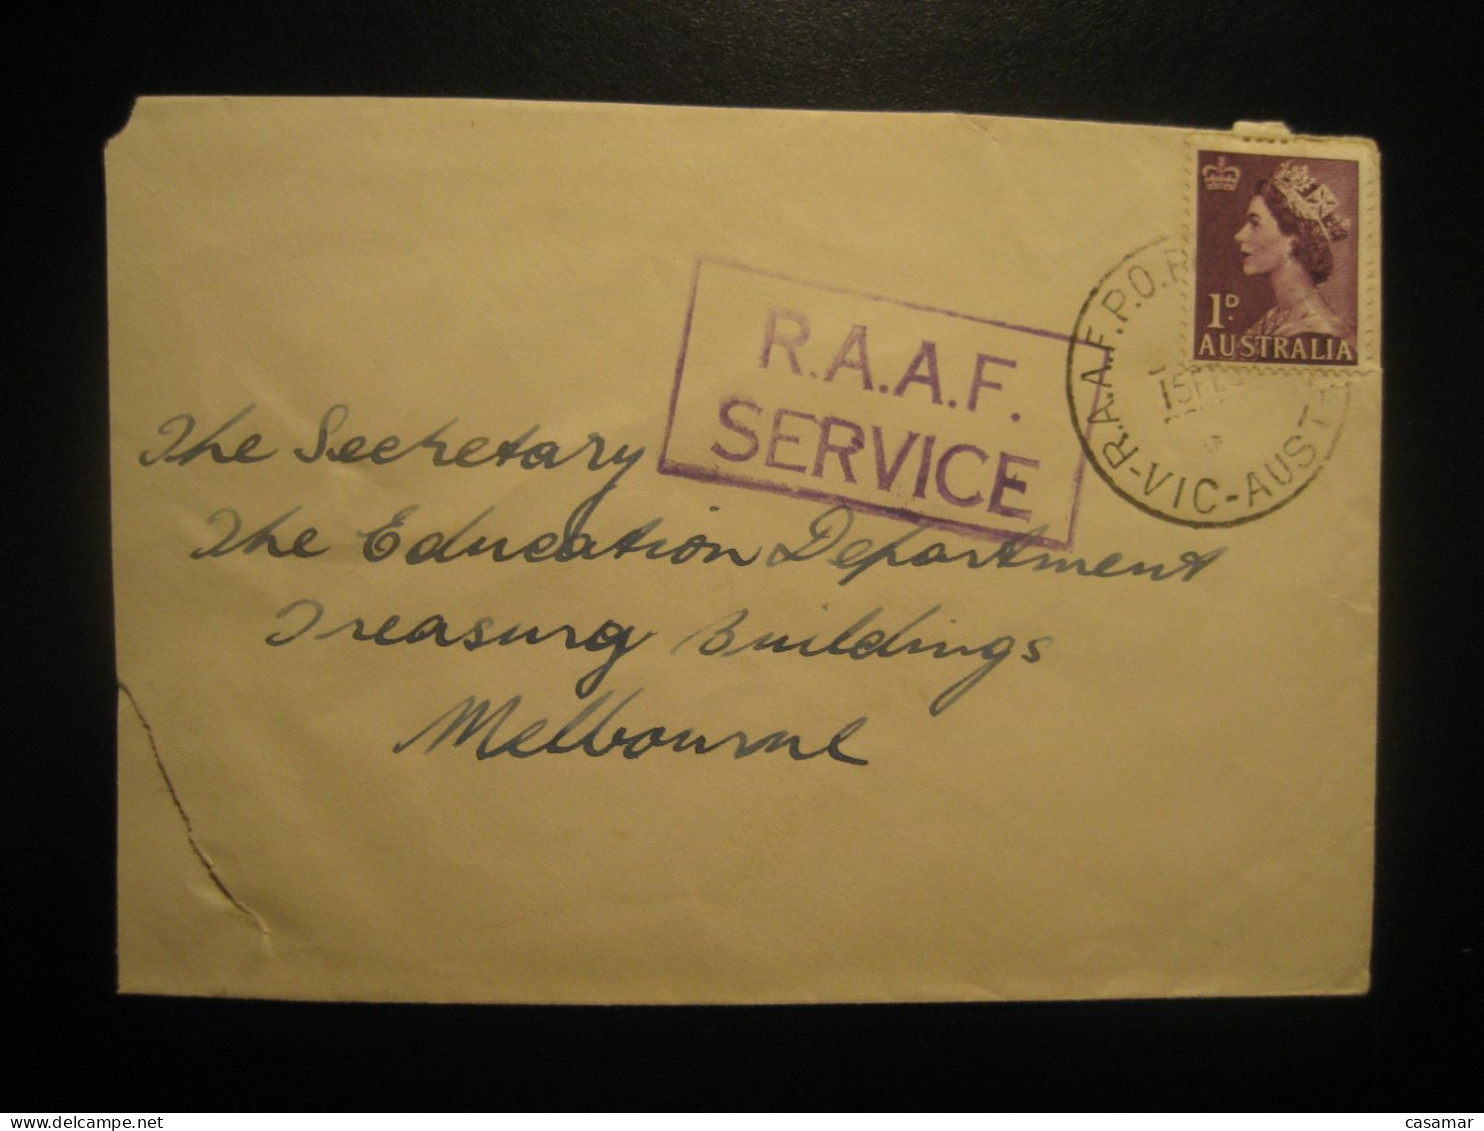 1D.
AUSTRALIA
R.A.A.F.
SERVICE
R.A.A.F.P.O.
15 FE
-VIC-AUST-
The Secretary
The Education Department
Treasury Buildings
Melbourne
www.delcampe.net
casamar